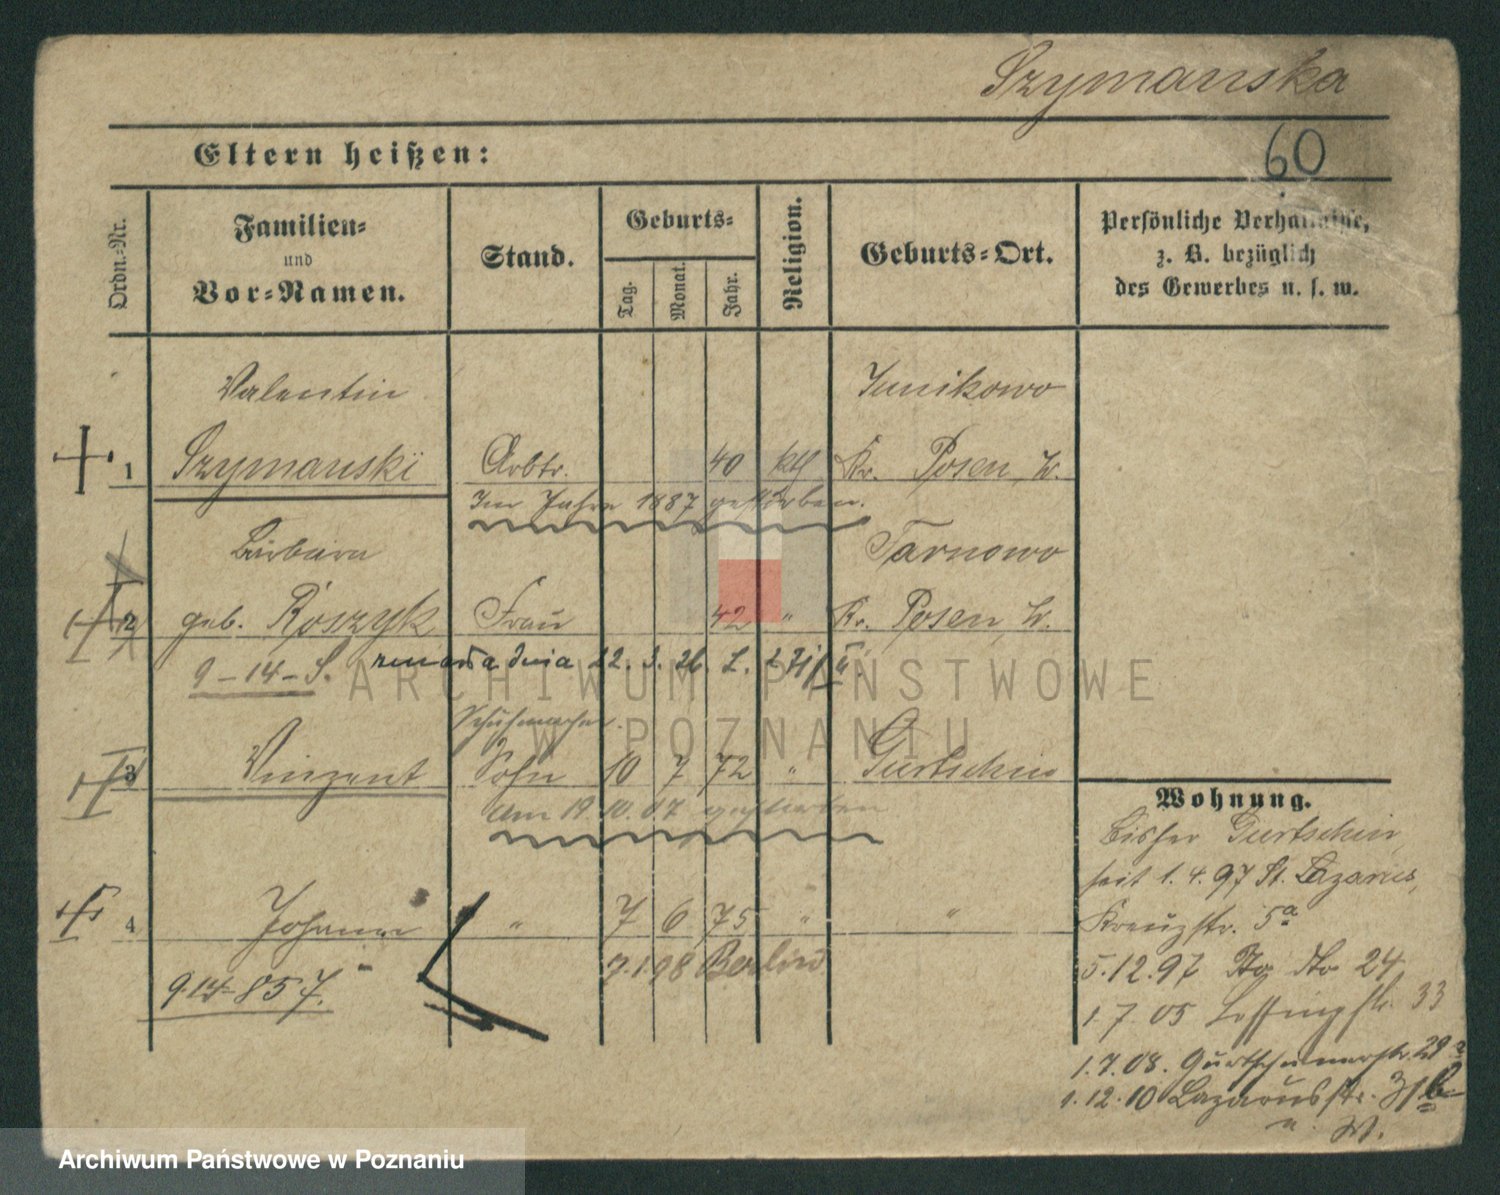 Szymanska
60
Eltern heißen:
Ordn.-Nr.
Familien-
und
Vor-Namen.
Stand.
Geburts-
Tag.
Monat.
Jahr.
Religion.
Geburts-Ort.
Persönliche Verhältnisse,
z. B. bezüglich
des Gewerbes u. s. w.
Valentin
Junikowo
1 Szymanski Arbtr. 40 kth Kr. Posen, W.
Im Jahre 1887 gestorben.
Barbara
Tarnowo
2 geb. Roszyk Frau 42 " Kr. Posen, W.
9-14-S. zmarła dnia 22. 3. 26.
Schuhmacher
3 Vinzent Sohn 10 7 72 " Gurtschin
am 19.10.07 gestorben
4 Johann " 7 6 75 " "
9.1.98 Berlin
9-14-857.
Wohnung.
Bisher Gurtschin,
seit 1.4.97 St. Lazarus,
Kreuzstr. 5a
5.12.97 dto 24
1.7.05 Lessingstr. 33
1.7.08. Gurtschinerstr. 29
1.12.10 Lazarusstr. 31b
ARCHIWUM PAŃSTWOWE
W POZNANIU
Archiwum Państwowe w Poznaniu